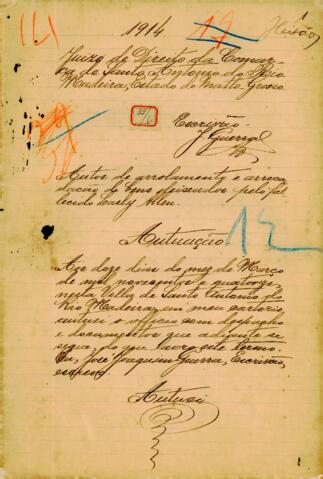 14 1914 12
Juizo de Direito da Comar-
ca de Santo Antonio do Rio
Madeira, Estado de Matto Grosso
Escrivão
J Guerra
Autos de arrolamento e arreca
dação de bens deixados pelo fal
lecido
Autuação
12
Aos doze dias do mez de Março
de mil novecentos e quatorze
nesta Villa de Santo Antonio do
Rio Madeira, em meu cartorio
autuei o officio com despacho
e documentos que adiante se
segue, do que lavro este termo.
Eu, José Joaquim Guerra, Escrivão,
escrevi.
Autuei